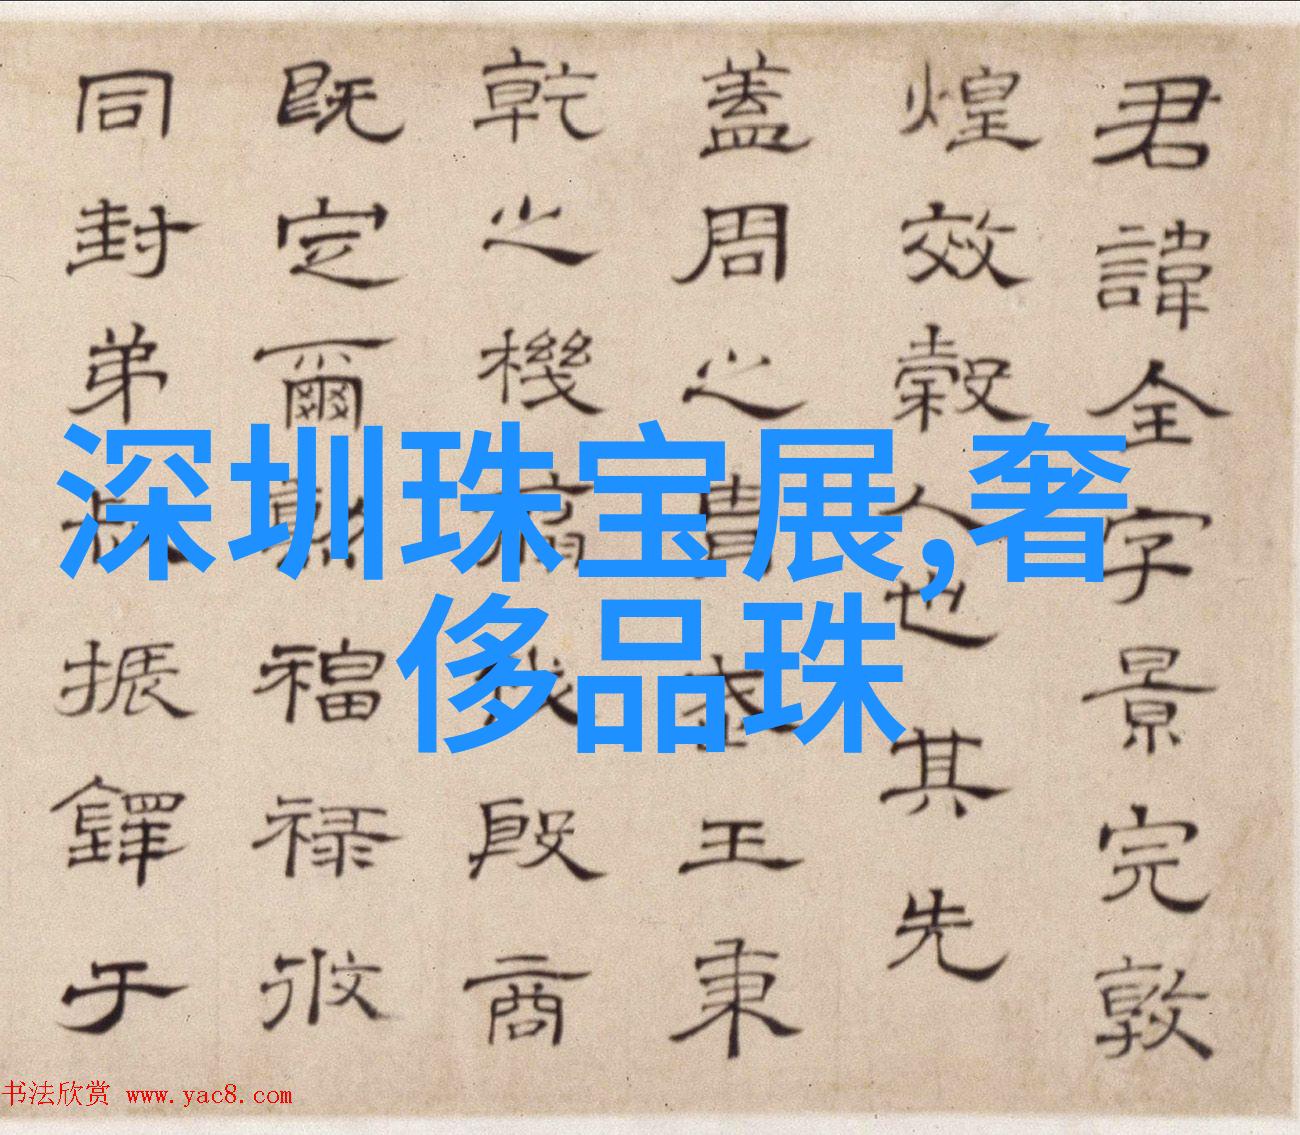 君諱全字景完敦
煌效穀人也其先
蓋周之王秉
乾之機殷商
既定爾福祿攸
同封弟叔振鐸于
深圳珠宝展,奢
侈品珠
书法欣赏 www.yac8.com